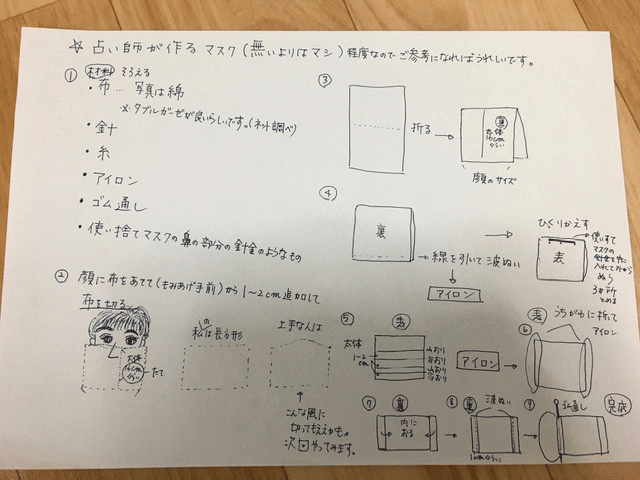 ☆ 占い師が作るマスク(無いよりはマシ)程度なのでご参考になればうれしいです。
① 材料 そろえる
・布… 写真は綿
※ダブルガーゼが良いらしいです。(ネット調べ)
・針
・糸
・アイロン
・ゴム通し
・使い捨てマスクの鼻の部分の針金のようなもの
② 顔に布をあてて(もみあげ手前)から1〜2cm追加して
布を切る。
大体
16cm
ぐらい
たて
の
私は長方形
上手な人は
↑
こんな風に
切ってもええかも。
次回やってみます。
③
折る
裏
大体
16cm
ぐらい
顔のサイズ
④
裏
線を引いて波ぬい
アイロン
ひっくりかえす
表
使いすて
マスクの
針金を中に
入れて
ぬう
3カ所
とめる
⑤ 表
大体
1〜2
cm
山おり
谷おり
山おり
谷おり
アイロン
表 うちがわに折って
⑥ アイロン
⑦ 裏
内に
おる
⑧ 裏 波ぬい
1cmぐらい
⑨ ゴム通し
完成